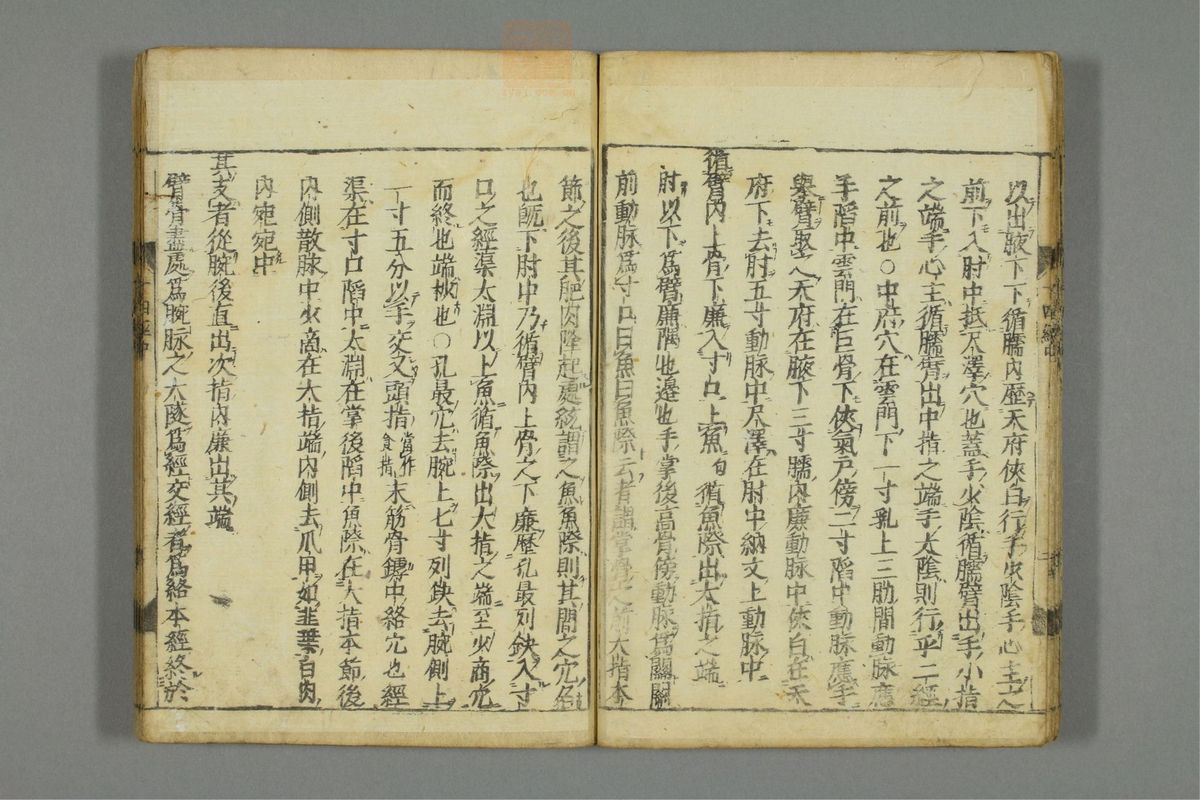 以出腋下下循臑内歴天府俠白行手少陰手心主之
前下入肘中抵尺澤穴也蓋手少陰循臑臂出手小指
之端手心主循臑臂出中指之端手太陰則行乎二經
之前也○中府穴在雲門下一寸乳上三肋間動脉應
手陷中雲門在巨骨下俠氣戸傍二寸陷中動脉應手
舉臂取之天府在腋下三寸臑内廉動脉中俠白在天
府下去肘五寸動脉中尺澤在肘中約文上動脉中
循臂内上骨下廉入寸口上魚句循魚際出大指之端
肘以下爲臂廉隅也邊也手掌後高骨傍動脉爲關關
前動脉爲寸口曰魚曰魚際云者謂掌骨之前大指本
節之後其肥肉隆起處統謂之魚魚際則其間之穴名
也既下肘中乃循臂内上骨之下廉歴孔最列鈌入寸
口之經渠太淵以上魚循魚際出大指之端至少商穴
而終也端杪也○孔最穴去腕上七寸列鈌去腕側上
一寸五分以手交叉頭指當作食指末筋骨鏬中絡穴也經
渠在寸口陷中太淵在掌後陷中魚際在大指本節後
内側散脉中少商在大指端内側去爪甲如韭葉白肉
内宛宛中
其支者從腕後直出次指内廉出其端
臂骨盡處爲腕脉之大隧爲經交經者爲絡本經終於